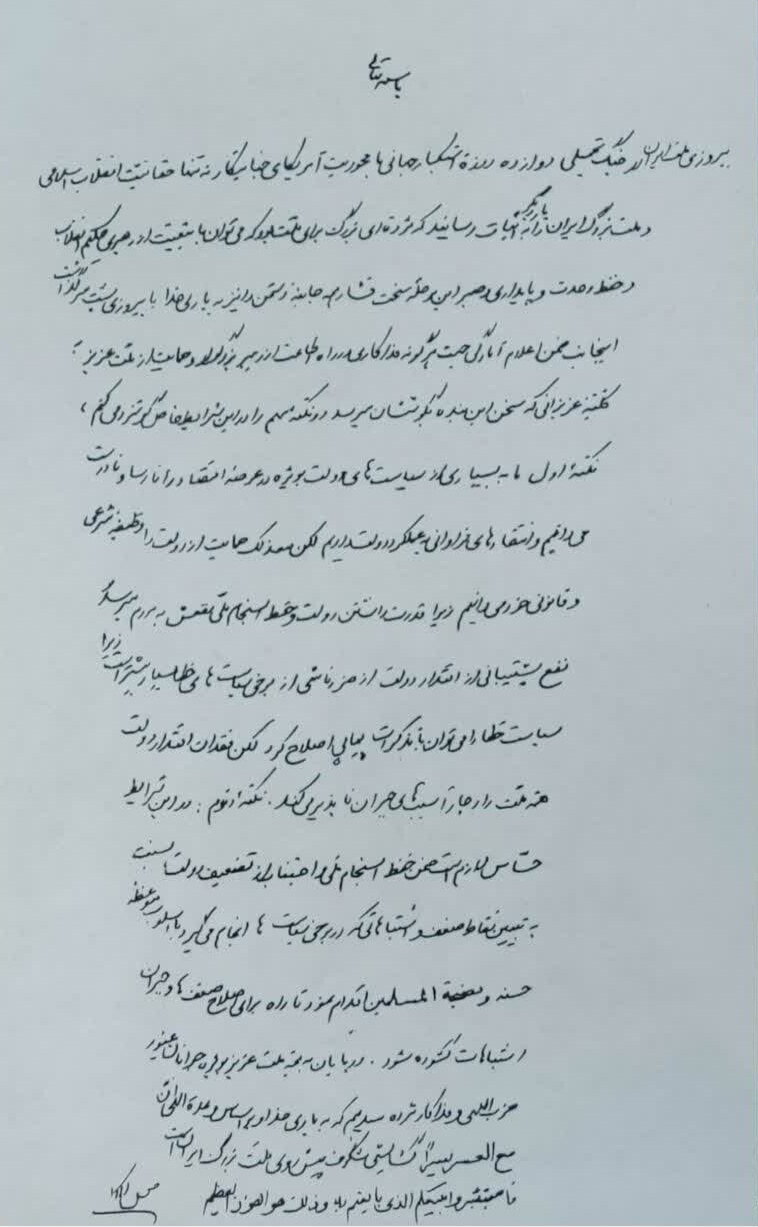 باسمه تعالی
پیروزی ملت ایران در جنگ تحمیلی دوازده روزهٔ استکبار جهانی با محوریت آمریکای جنایتکار نه تنها حقانیت انقلاب اسلامی
و ملت بزرگ ایران را بار دیگر به اثبات رسانید که مژده‌ای بزرگ برای ملت بود که می‌توان با تبعیت از رهبری حکیم انقلاب
و حفظ وحدت و پایداری و صبر این مرحله سخت فشار همه جانبه دشمن را نیز به یاری خدا با پیروزی پشت سر گذاشت
اینجانب ضمن اعلام آمادگی جهت هرگونه فداکاری در راه اطاعت از رهبر بزرگوار و حمایت از ملت عزیز به
کلیه عزیزانی که سخن این بنده به گوششان میرسد دو نکته مهم را در این شرایط خاص گوشزد می کنم،
نکتهٔ اول ما به بسیاری از سیاست های دولت بویژه در عرصه اقتصاد را نارسا و نادرست
می‌دانیم و انتقادهای فراوانی به عملکرد دولت داریم لکن معذلک حمایت از دولت را وظیفه شرعی
و قانونی خود می دانیم زیرا قدرت داشتن دولت و حفظ انسجام ملی نفعش به مردم میرسد و
نفع پشتیبانی از اقتدار دولت از ضرر ناشی از برخی سیاست های خطا بسیار بیشتر است زیرا
سیاست خطا را می توان با تذکرات پیاپی اصلاح کرد لکن فقدان اقتدار دولت
همه ملت را دچار آسیبهای جبران ناپذیر می کند. نکتهٔ دوم: در این شرایط
حساس لازم است ضمن حفظ انسجام ملی و اجتناب از تضعیف دولت نسبت
به تبیین نقاط ضعف و اشتباهاتی که در برخی سیاست ها انجام می گیرد با اسلوب موعظه
حسنه و نصیحة المسلمین اقدام نمود تا راه برای اصلاح ضعف ها و جبران
اشتباهات گشوده شود. در پایان به همه ملت عزیز بویژه جوانان غیور
حزب اللهی و فداکار مژده میدهم که به یاری خدا و بر اساس وعدهٔ الهی ان
مع العسر یسراً گشایشی شگرف پیش روی ملت بزرگ ایران است
فاستبشروا ببیعکم الذی بایعتم به وذلک هو الفوز العظیم